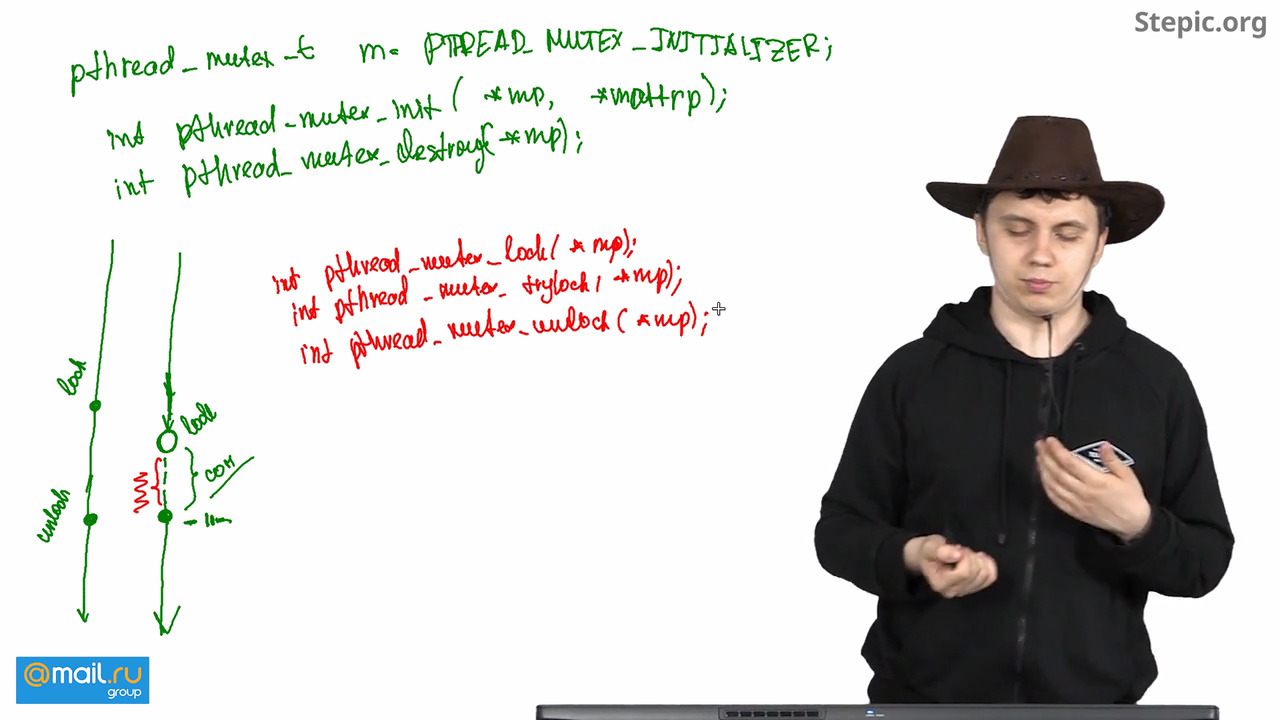 Stepic.org
pthread_mutex_t m= PTHREAD_MUTEX_INITIALIZER;
int pthread_mutex_init( *mp, *mpattrp);
int pthread_mutex_destroy(*mp);
int pthread_mutex_lock( *mp);
int pthread_mutex_trylock( *mp);
int pthread_mutex_unlock( *mp);
lock
lock
сон
unlock
@mail.ru
group